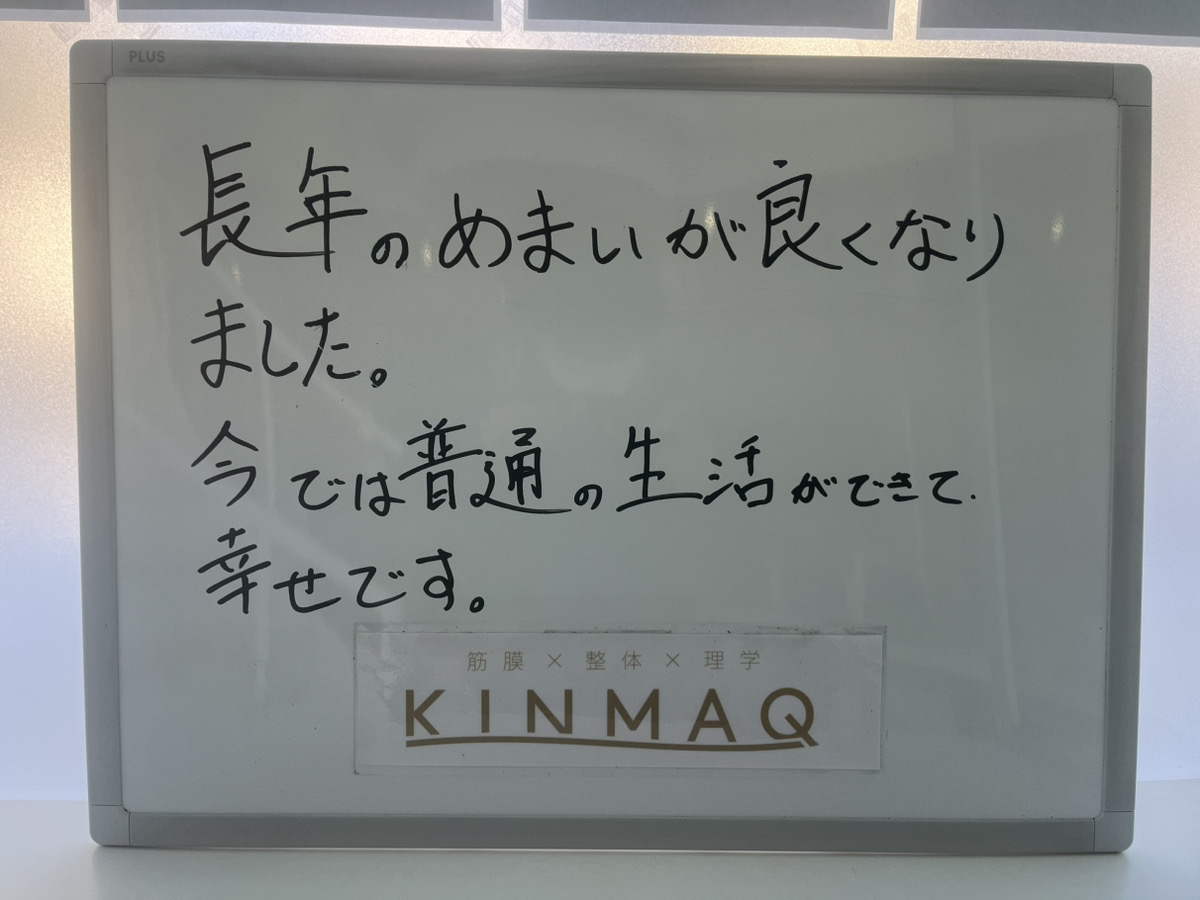 PLUS
長年のめまいが良くなり
ました。
今では普通の生活ができて
幸せです。
筋膜×整体×理学
KINMAQ